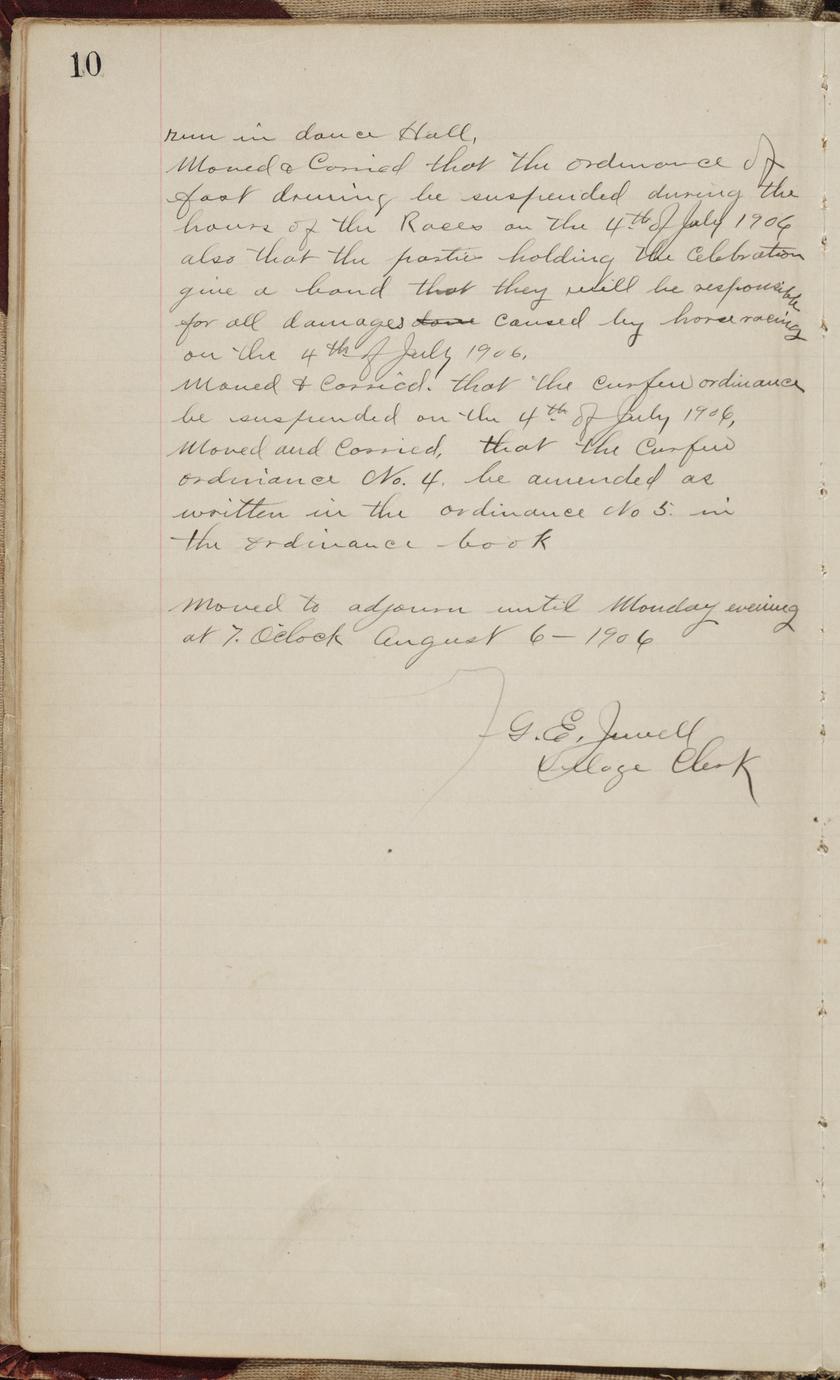 10
run in dance Hall,
Moved & Carried that the ordinance of
fast driving be suspended during the
hours of the Races on the 4th of July 1906
also that the parties holding the Celebration
give a bond that they will be responsible
for all damages done caused by horse racing
on the 4th of July 1906.
Moved & Carried. that the curfew ordinance
be suspended on the 4th of July 1906,
Moved and Carried, that the Curfew
ordinance No. 4. be amended as
written in the ordinance No 5. in
the ordinance book
Moved to adjourn until Monday evening
at 7. Oclock August 6 - 1906
G. E. Juvell
Village Clerk